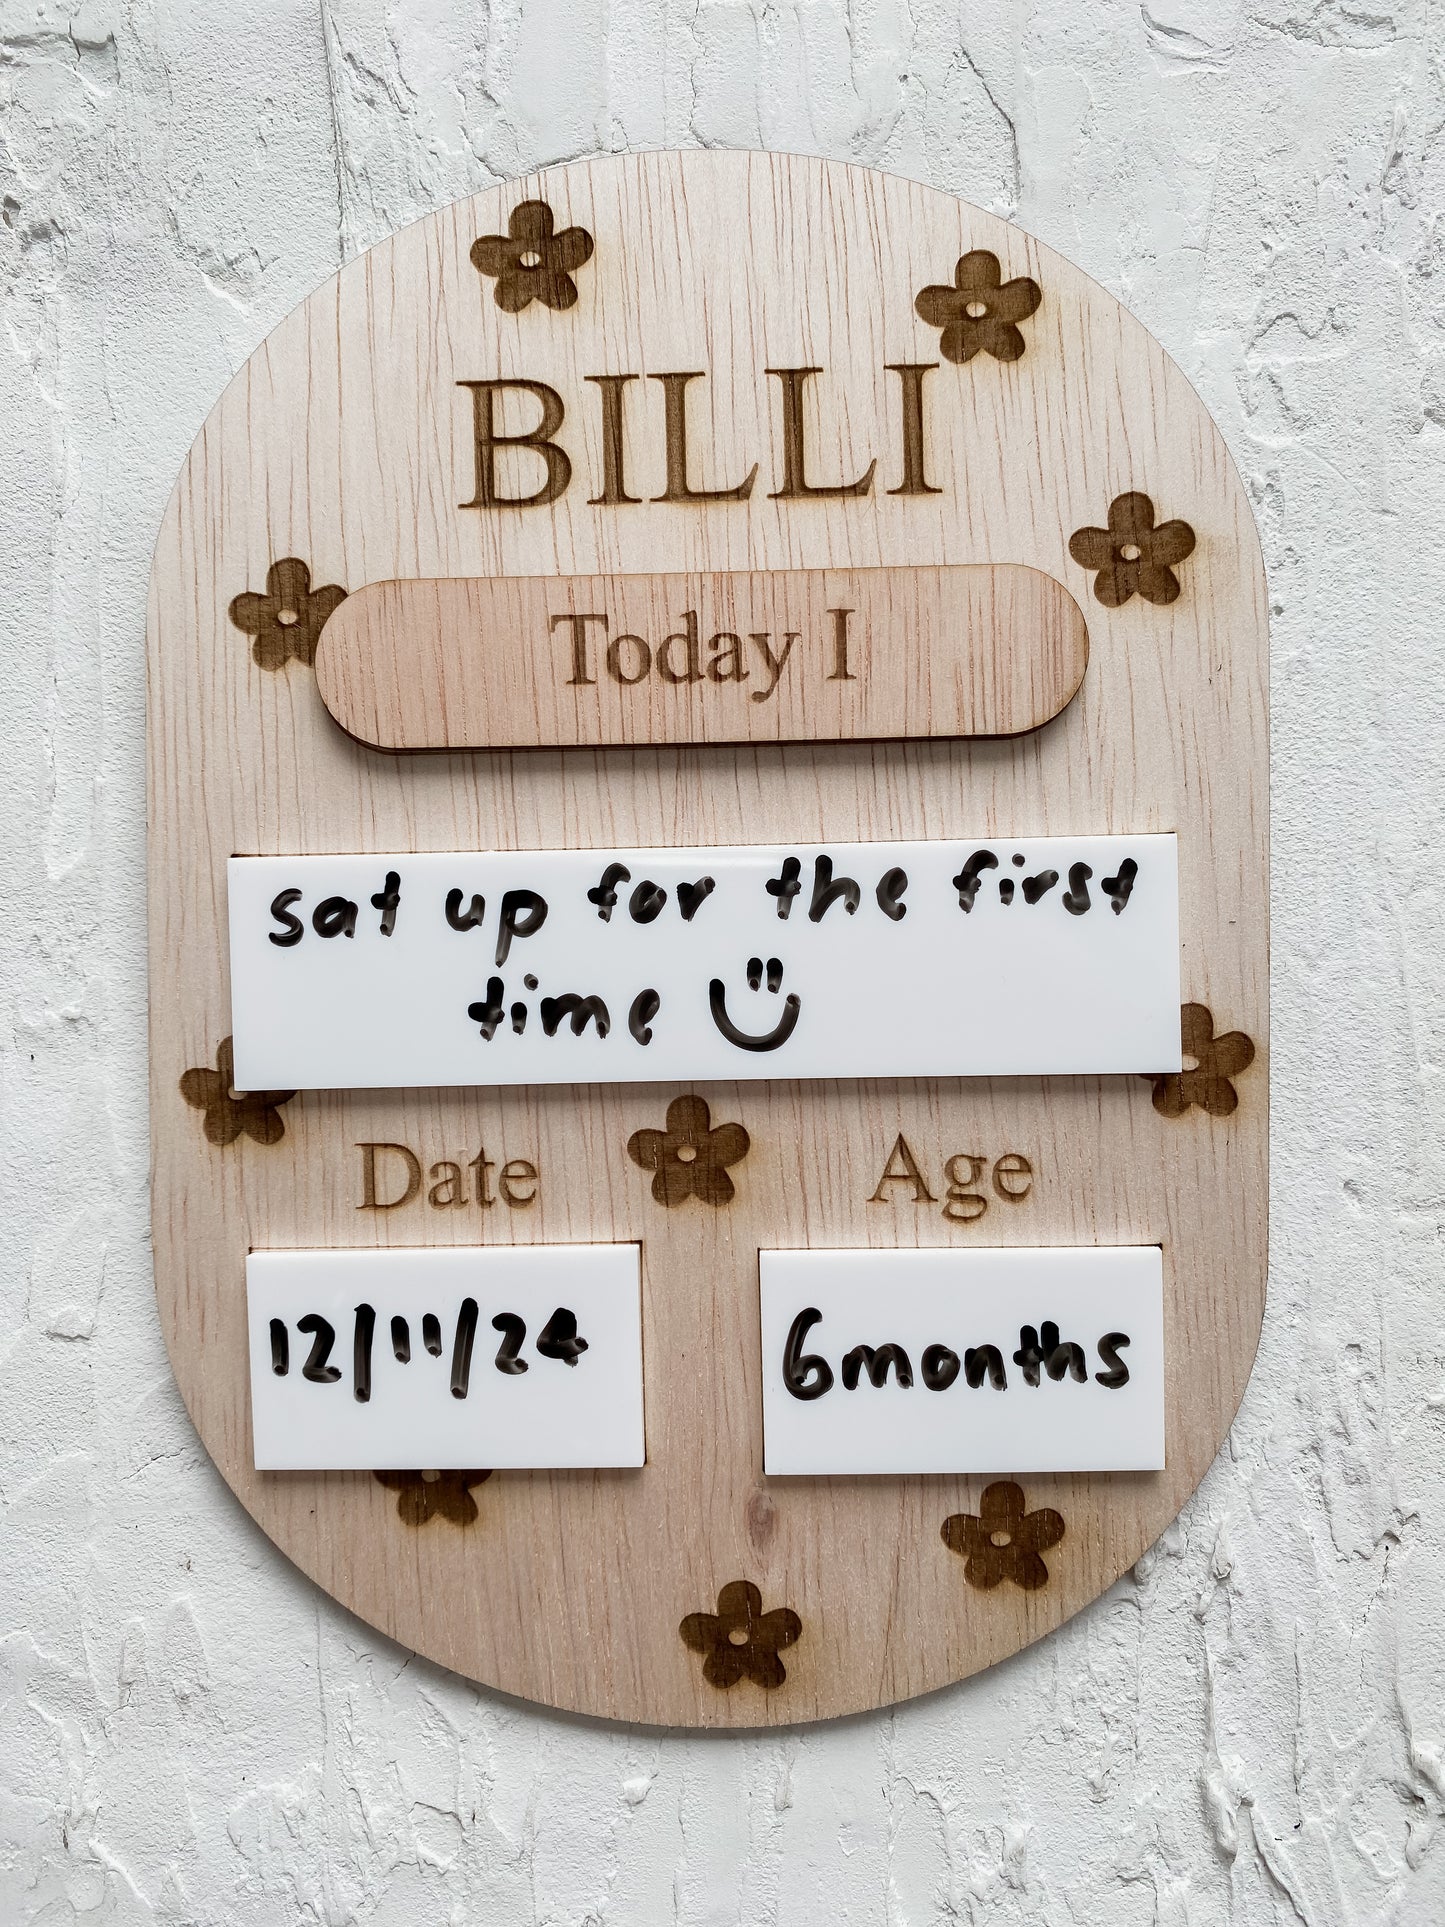 BILLI
Today I
sat up for the first
time
Date Age
12/11/24 6months